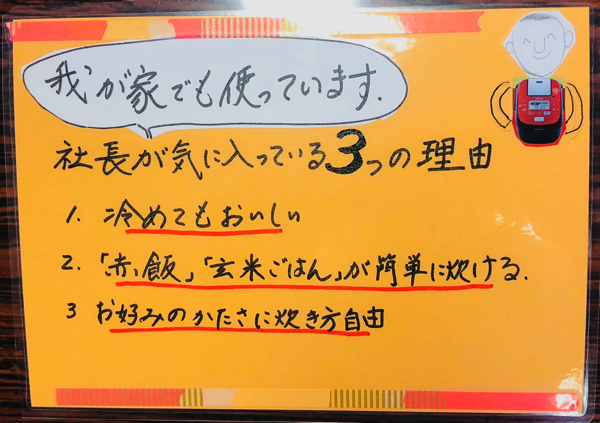 我が家でも使っています.
社長が気に入っている3つの理由
1. 冷めてもおいしい
2. 「赤飯」「玄米ごはん」が簡単に炊ける.
3 お好みのかたさに炊き方自由